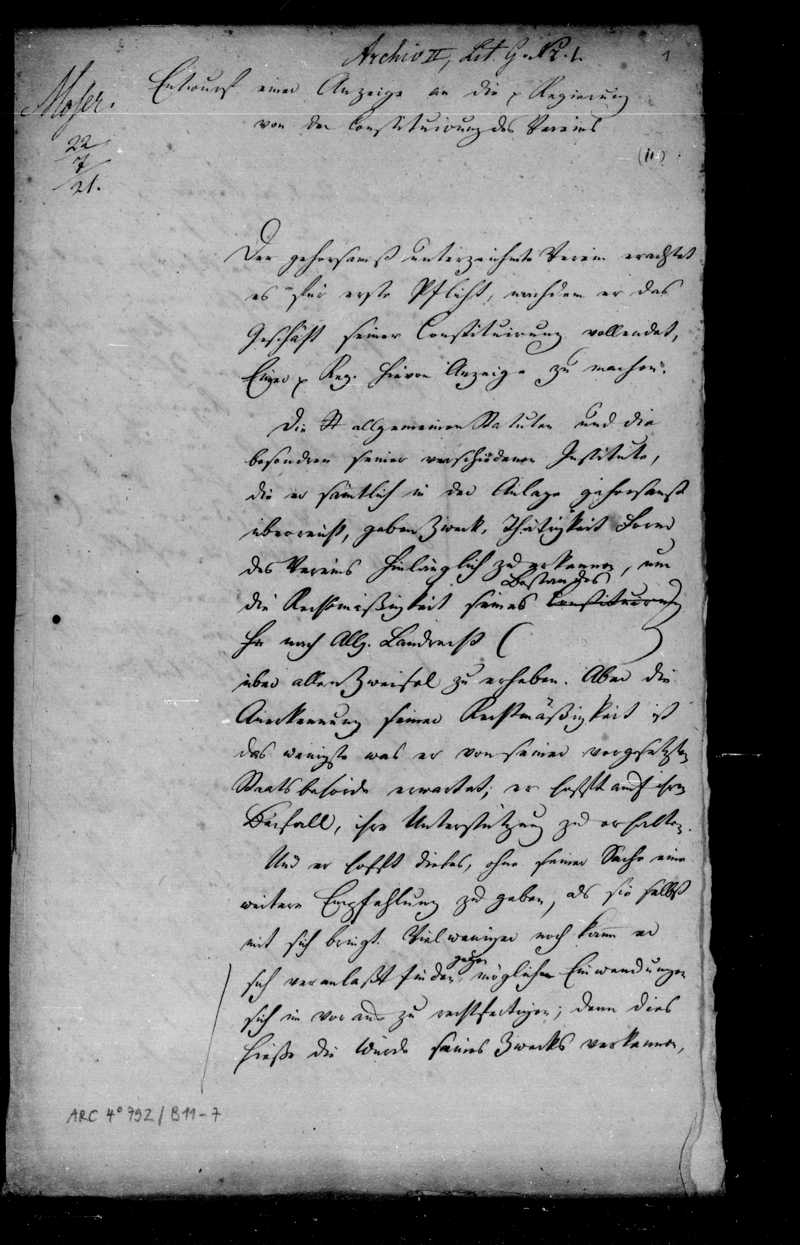 Archiv II, Lit. G. Nr. 1.
1
Moser.
22/7/21.
Entwurf einer Anzeige an die p Regierung
von der Constituirung des Vereins
(11)
Der gehorsamst unterzeichnete Verein erachtet
es für erste Pflicht, nachdem er das
Geschäft seiner Constituirung vollendet,
Einer p Reg. hievon Anzeige zu machen.
Die allgemeinen Statuten und die
besondren seiner verschiedenen Institute,
die er sämtlich in der Anlage gehorsamst
überreicht, geben Zweck, Thätigkeit Form
des Vereins hinlänglich zu erkennen, um
die Rechtmäßigkeit seines Constituirung
Bestandes
nach Allg. Landrecht ( )
über allen Zweifel zu erheben. Aber die
Anerkennung seiner Rechtmäßigkeit ist
das wenigste was er von seiner vorgesetzten
Staatsbehörde erwartet; er hofft auch ihren
Beifall, ihre Unterstützung zu erhalten.
Und er hofft dieses, ohne seiner Sache eine
weitere Empfehlung zu geben, als sie selbst
mit sich bringt. Viel weniger noch kann er
sich veranlaßt finden gegen mögliche Einwendungen
sich im voraus zu rechtfertigen; denn dies
hieße die Würde seines Zwecks verkennen,
ARC 4° 792 / B11-7